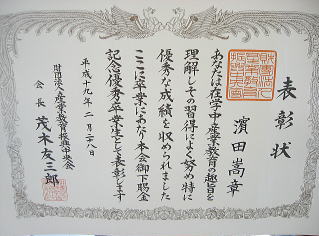 表彰状
濵田嵩章
あなたは在学中産業教育の趣旨を
理解しその習得によく努め特に
優秀な成績を収められました
ここに卒業にあたり本会御下賜金
記念優秀卒業生として表彰します
平成十九年二月二十八日
財団法人産業教育振興中央会
会長 茂木友三郎